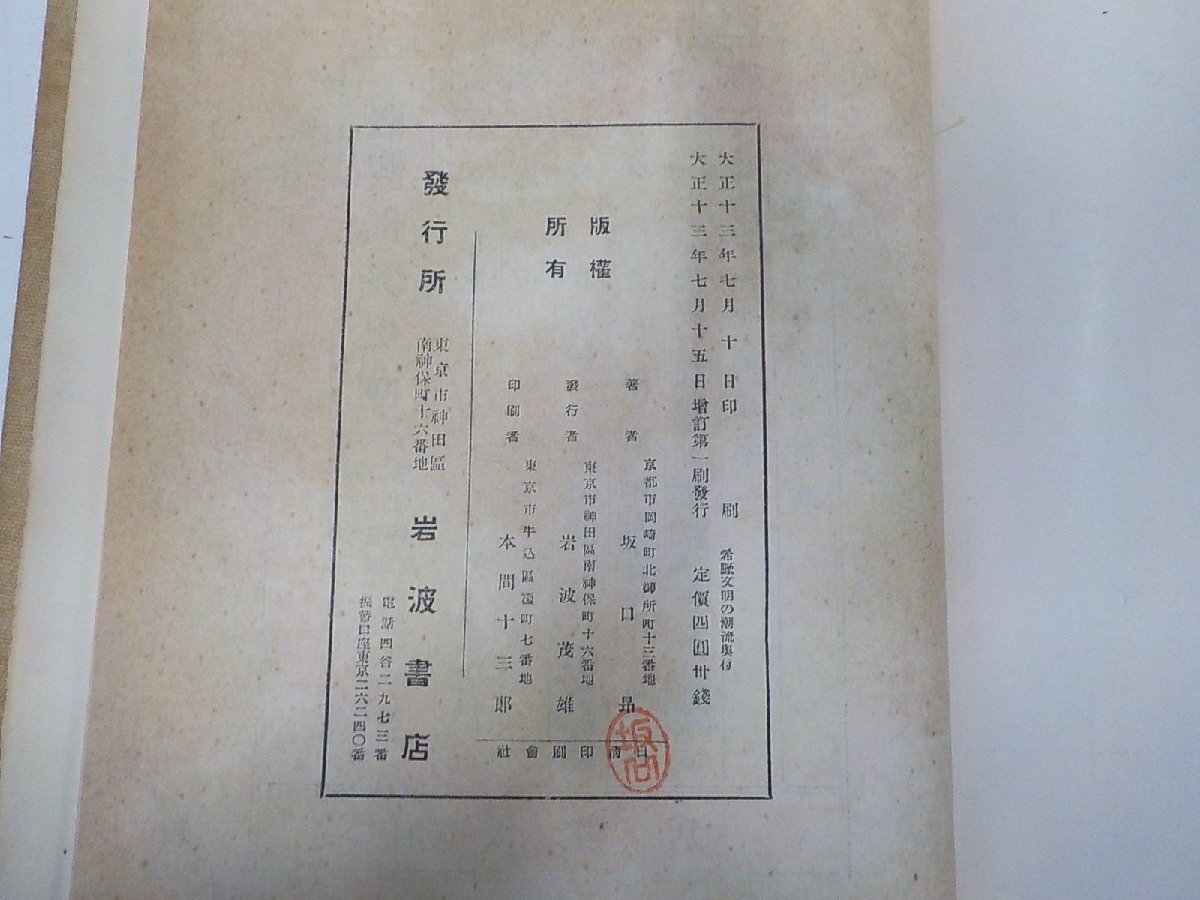 大正十三年七月十日印刷
大正十三年七月十五日增訂第一刷發行
希臘文明の潮流奧付
定價四圓卅錢
版權
所有
著者
京都市岡崎町北御所町十三番地
坂口昻
發行者
東京市神田區南神保町十六番地
岩波茂雄
印刷者
東京市牛込區榎町七番地
本間十三郎
日淸印刷會社
坂口
發行所
東京市神田區
南神保町十六番地
岩波書店
電話四谷二九七三番
振替口座東京二六二四〇番